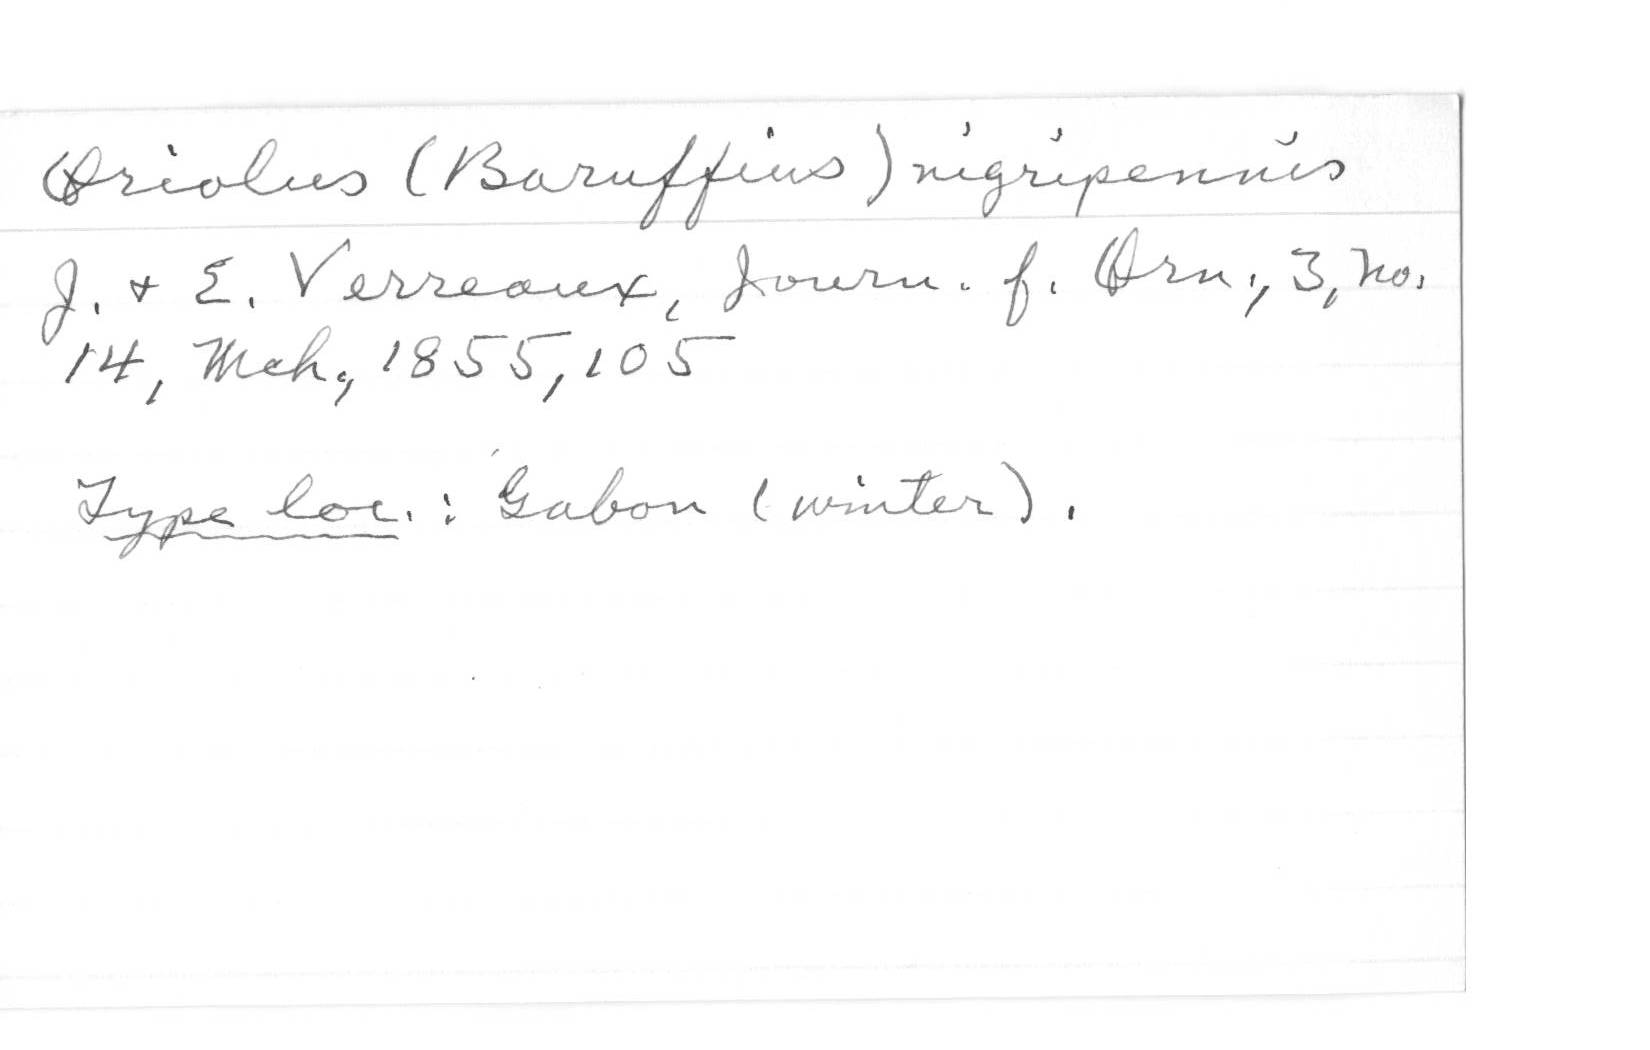 Oriolus (Baruffius) nigripennis
J. + E. Verreaux, Journ. f. Orn., 3, no.
14, Mch., 1855, 105
Type loc.: Gabon (winter).